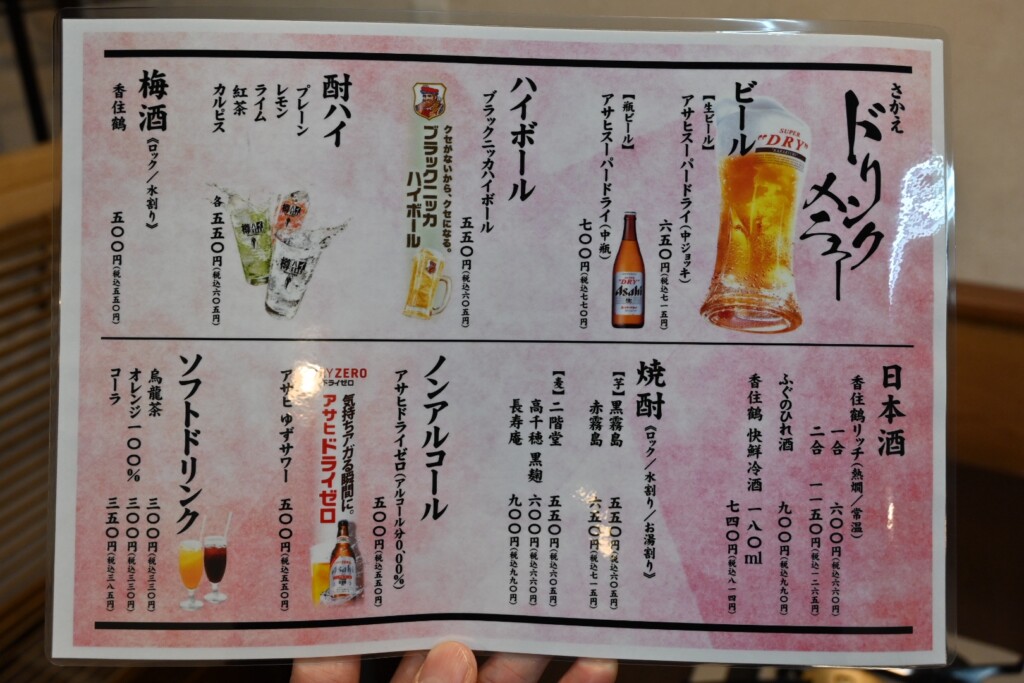 さかえ
ドリンクメニュー
ビール
【生ビール】
アサヒスーパードライ（中ジョッキ）
六五〇円（税込七一五円）
【瓶ビール】
アサヒスーパードライ（中瓶）
七〇〇円（税込七七〇円）
SUPER
"DRY"
"DRY"
Asahi
ハイボール
ブラックニッカハイボール
五五〇円（税込六〇五円）
クセがないから、クセになる。
ブラックニッカ
ハイボール
酎ハイ
プレーン
レモン
ライム
紅茶
カルピス
各五五〇円（税込六〇五円）
梅酒（ロック／水割り）
香住鶴
五〇〇円（税込五五〇円）
日本酒
香住鶴リッチ（熱燗／常温）
一合 六〇〇円（税込六六〇円）
二合 一一五〇円（税込一二六五円）
ふぐのひれ酒 九〇〇円（税込九九〇円）
香住鶴 快鮮冷酒 一八〇ml
七四〇円（税込八一四円）
焼酎（ロック／水割り／お湯割り）
【芋】黒霧島 五五〇円（税込六〇五円）
赤霧島 六五〇円（税込七一五円）
【麦】二階堂 五五〇円（税込六〇五円）
高千穂 黒麹 六〇〇円（税込六六〇円）
長寿庵 九〇〇円（税込九九〇円）
ノンアルコール
アサヒドライゼロ（アルコール分0.00%）
五〇〇円（税込五五〇円）
気持ちアガる瞬間に。
アサヒドライゼロ
ZERO
ドライゼロ
アサヒ ゆずサワー 五〇〇円（税込五五〇円）
ソフトドリンク
烏龍茶 三〇〇円（税込三三〇円）
オレンジ一〇〇% 三〇〇円（税込三三〇円）
コーラ 三五〇円（税込三八五円）